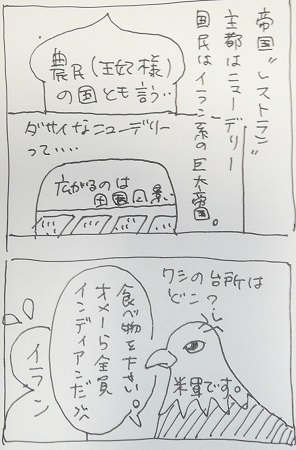 帝国”レストラン”
主都はニューデリー
国民はイラン系の巨大帝国。
農民(王妃様)
の国とも言う…
ダサイなニューデリー
って….
広がるのは
田園風景
ワシの台所は
どこ?
食べ物を下さい。
オメーら全員
インディアンだ
イラン
米買です。